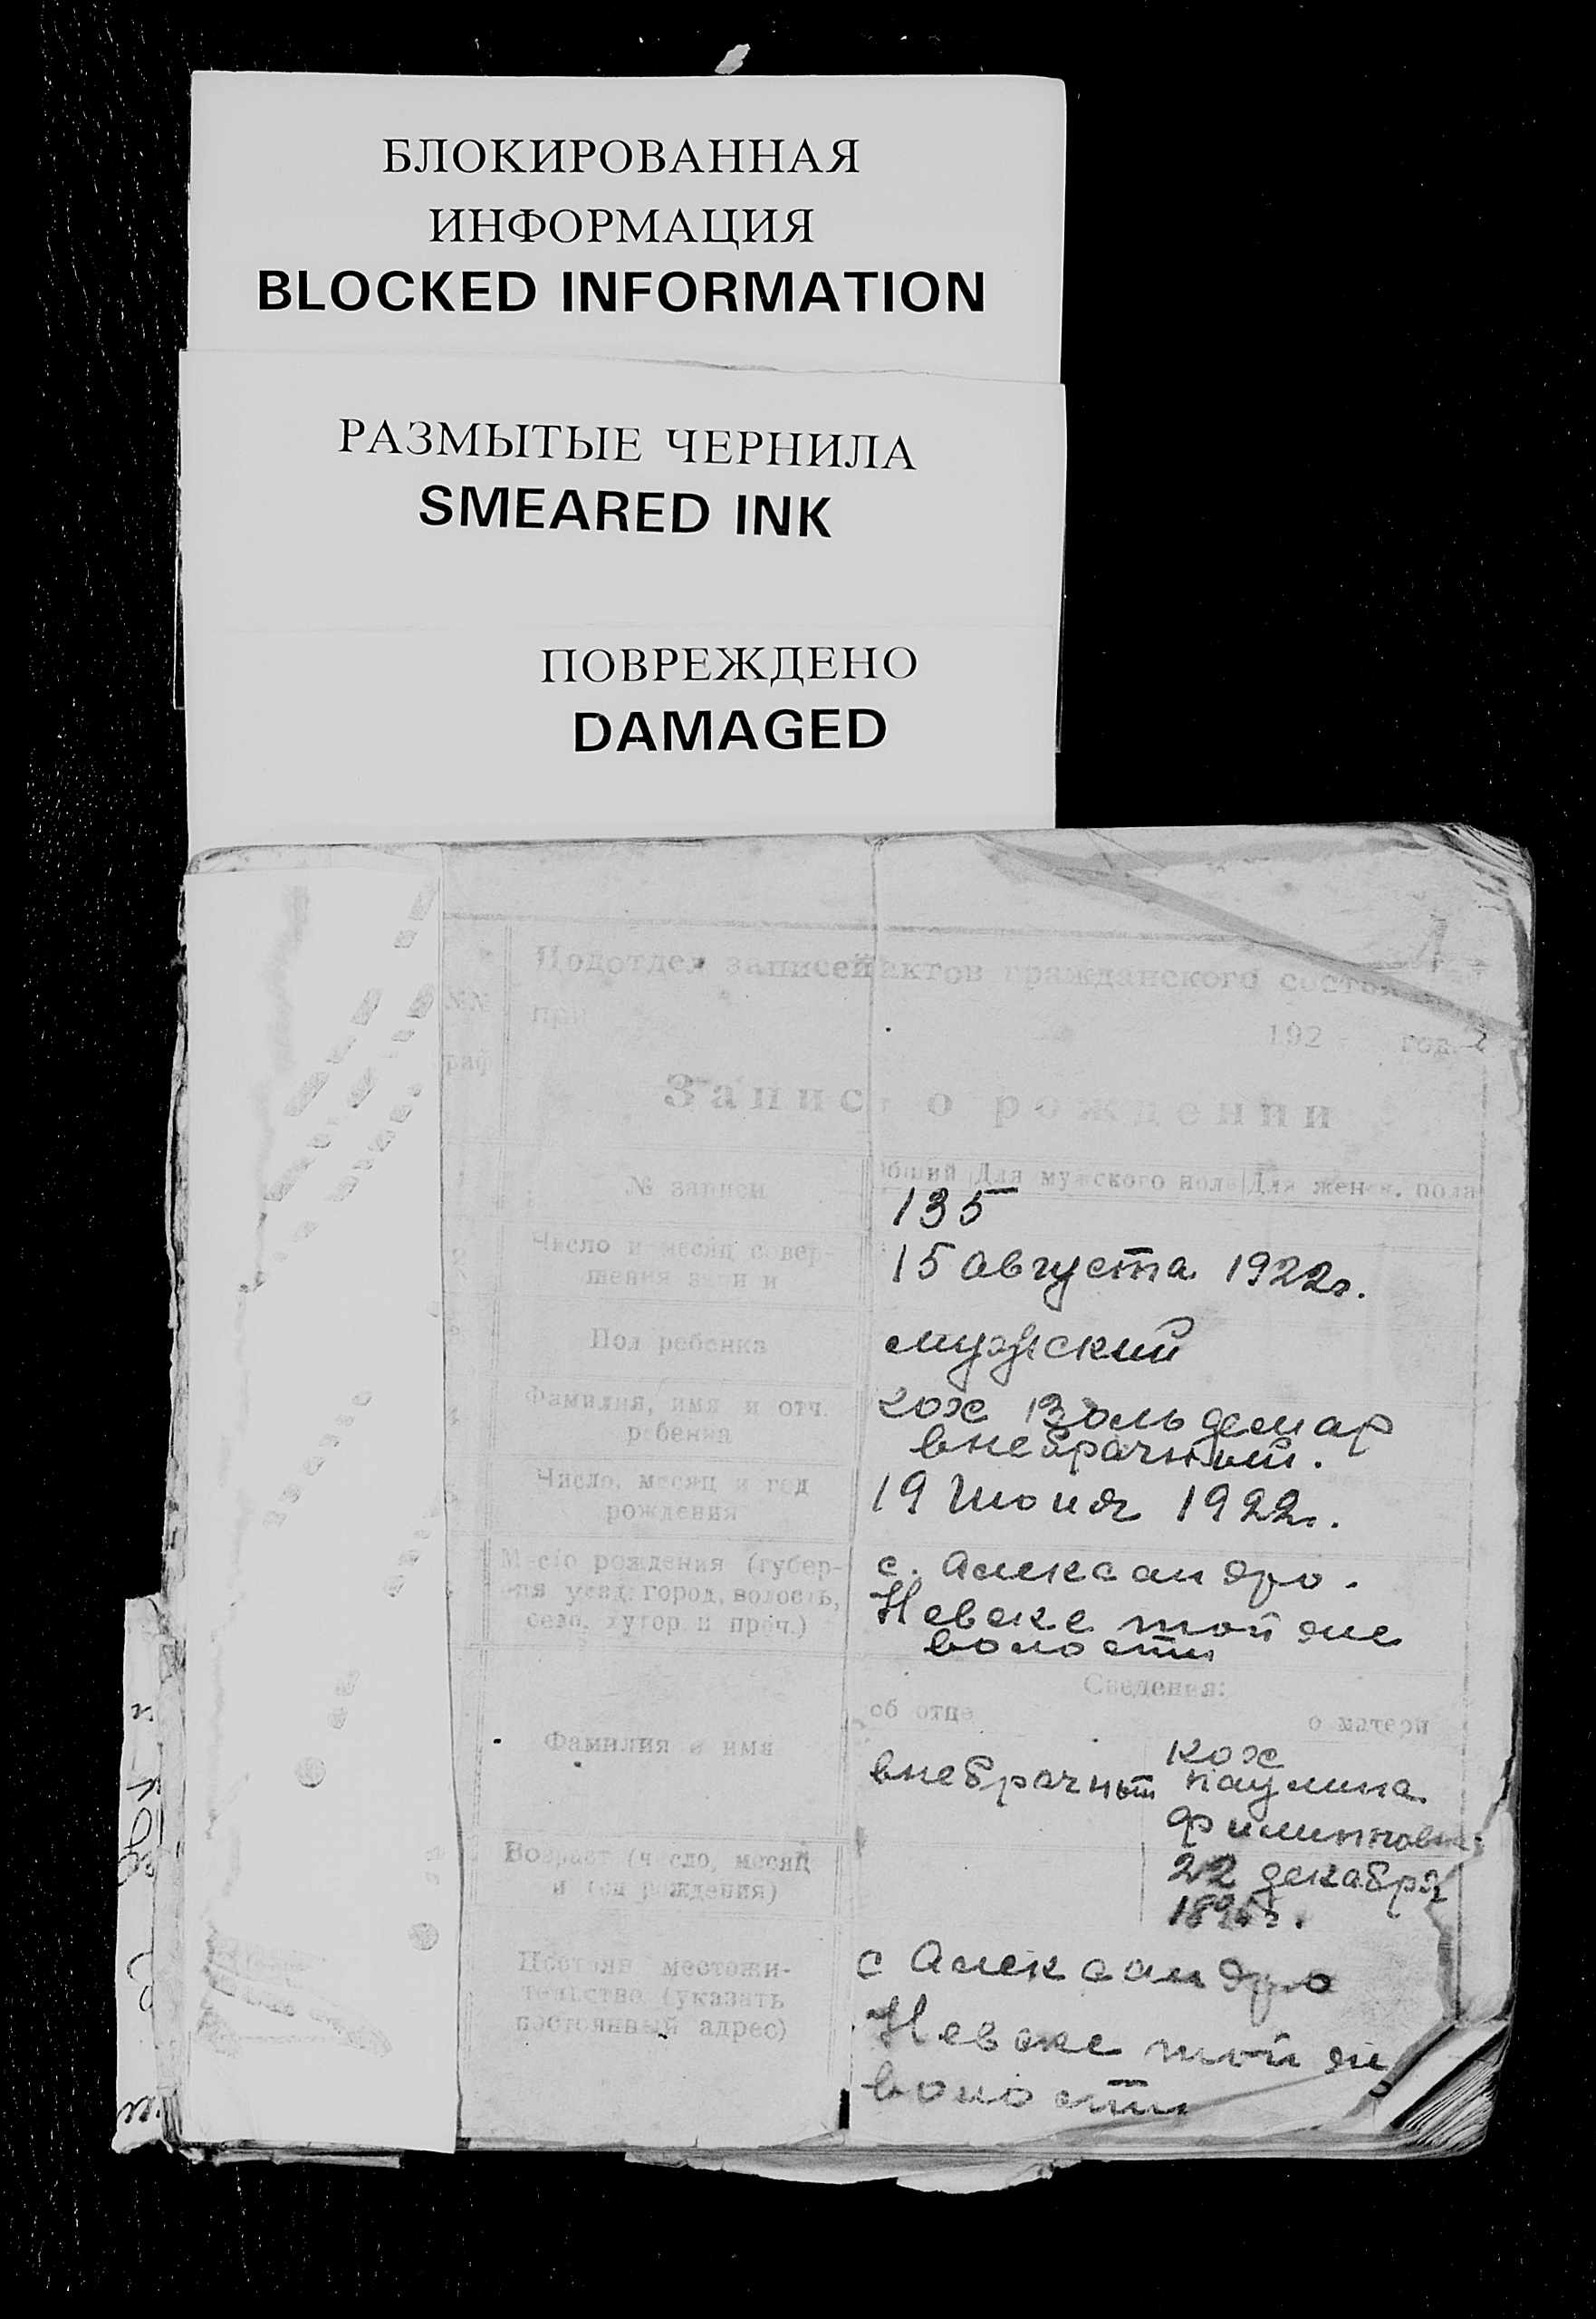 БЛОКИРОВАННАЯ
ИНФОРМАЦИЯ
BLOCKED INFORMATION
РАЗМЫТЫЕ ЧЕРНИЛА
SMEARED INK
ПОВРЕЖДЕНО
DAMAGED
Подотдел записей актов гражданского
при 192 год
Запись о рождении
№ записи
Общий Для мужского пола Для женск. пола
135
Число и месяц совер-
шения записи
15 августа 1922г.
Пол ребенка
мужский
Фамилия, имя и отч.
ребенка
Кох Вольдемар
внебрачный.
Число, месяц и год
рождения
19 Июня 1922г.
Место рождения (губер-
ния уезд, город, волость,
село, хутор и проч.)
с. Александро.
Невске той же
волости
Сведения:
об отце
о матери
Фамилия и имя
внебрачный
Кох
Паулина
Филипповна
Возраст (число, месяц
и год рождения)
22 декабря
Постоян местожи-
тельство (указать
постоянный адрес)
с Александро
Невске той же
волости